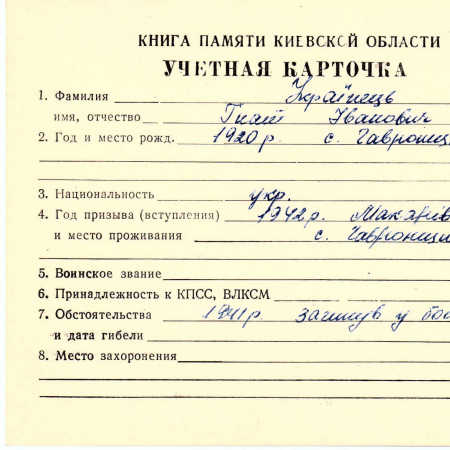 КНИГА ПАМЯТИ КИЕВСКОЙ ОБЛАСТИ
УЧЕТНАЯ КАРТОЧКА
1. Фамилия Українець
имя, отчество Гнат Іванович
2. Год и место рожд. 1920 р. с. Гаврониц
3. Национальность укр.
4. Год призыва (вступления) 1942 р. Макарів
и место проживания с. Гавроници
5. Воинское звание
6. Принадлежность к КПСС, ВЛКСМ
7. Обстоятельства 1941 р. загинув у бою
и дата гибели
8. Место захоронения